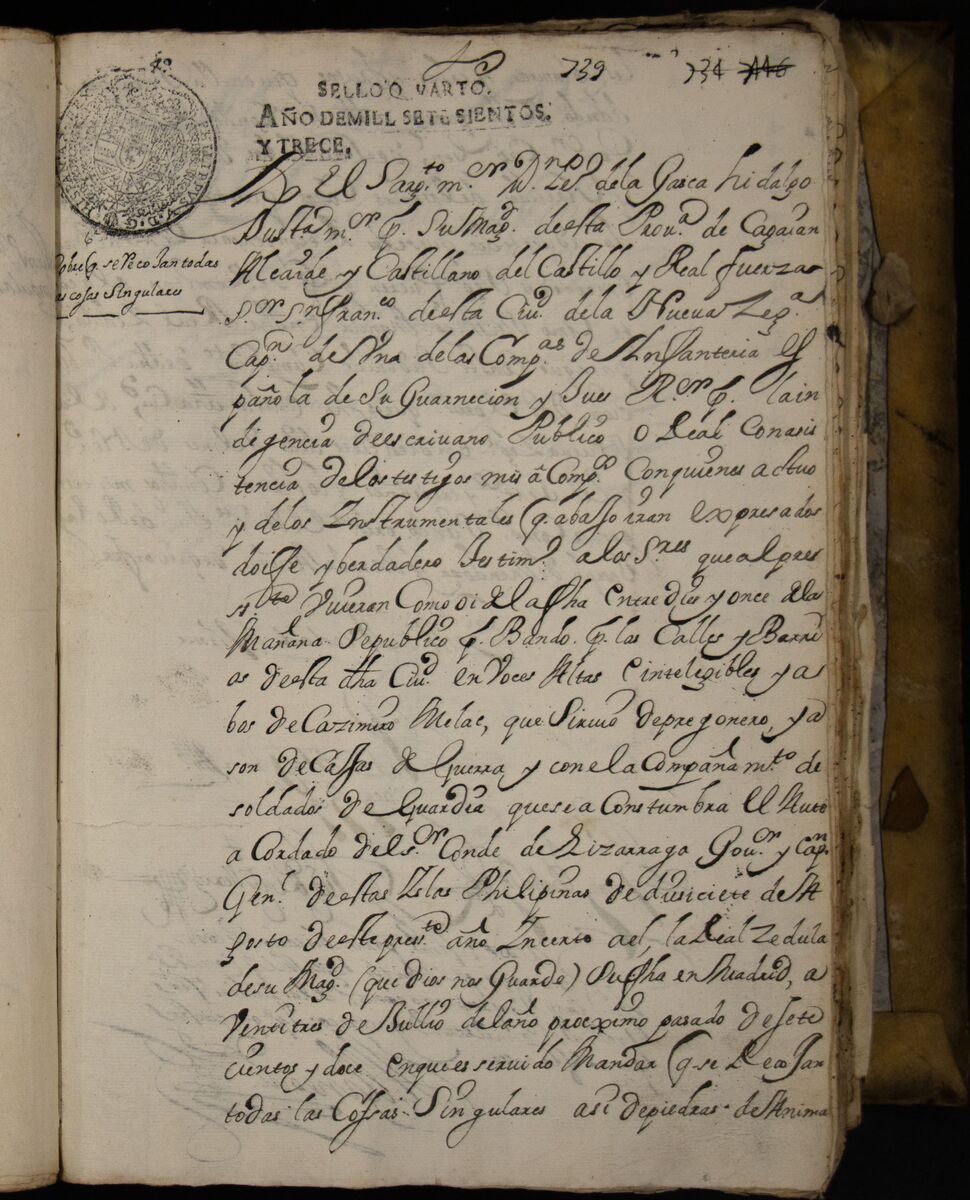 739 734
SELLO QVARTO.
AÑO DE MILL SETE SIENTOS.
Y TRECE.
El Sargto. mor. Dn. de la Gasca hidalgo
Justa. mor. pr. Su Magd. de esta Prova. de Cagaian
Alcaide y Castillano del Castillo y Real fuerza
Sor. Sn. Franco. de esta Ciud. de la Nueva Sega.
Capn. de Vna de las Compas. de Infanteria Es
pañola de Su Guarnecion y Jues Ror. pr. la in
digencia de escrivano Publico O Real Con asis
tencia de los testigos mis acompos. Con quienes actuo
y de los Instrumentales (q. abajo iran expresados
doi fe y berdadero testimo. a los Sres que al pres
ste Vieran Como oi dia de la fha entre dies y once de la
Mañana Se publico pr. Bando pr. las Calles y Barri
os de esta dha Ciud. en Voces Altas e intelegibles y a
bos de Cazimiro Melac, que Sirvio de pregonero, y a
son de Caxas de Guerra y con el acompañamto. de
soldados de Guardia que se a Costumbra El Auto
a Cordado del sor. Conde de Lizarraga Gour. y Capn.
Genl. de estas Islas Philipinas de diesiciete de A
gosto de este preste. año Incerto a el, la Real Zedula
de su Magd. (que Dios nos Guarde) Su fha en Madrid, a
Ventitres de Jullio del año proximo pasado de sete
cientos y doce en que es servido Mandar (q. se Recojan
todas las Cossas Singulares asi de piedras de Anima
Sobre q. se Recojan todas
las cosas Singulares